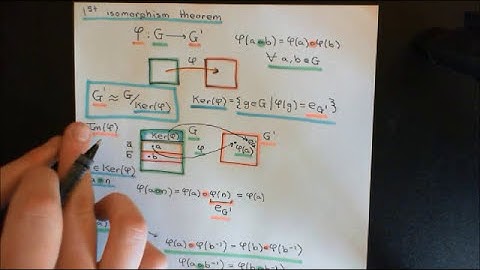 1st isomorphism theorem
φ : G → G'
φ(a∘b) = φ(a)∘φ(b)
∀ a,b ∈ G
φ
G' ≈ G/Ker(φ)
Ker(φ) = {g∈G | φ(g) = e_G'}
Im(φ)
Ker(φ) G G'
a •a φ φ(a)
b •b
∈ Ker(φ)
φ(a∘n) = φ(a)∘φ(n) = φ(a)
e_G'
φ(a)∘φ(b⁻¹) = φ(b)∘φ(b⁻¹)